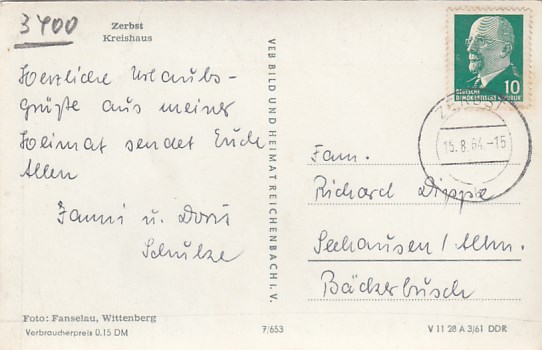 3400
Zerbst
Kreishaus
Herzliche Urlaubs-
grüße aus meiner
Heimat sendet Euch
Allen
Fanni u. Doris
Schulze
VEB BILD UND HEIMAT REICHENBACH I. V.
10
DEUTSCHE
DEMOKRATISCHE REPUBLIK
ZERBST
15.8.64.-15
Fam.
Richard Dippe
Seehausen/Altm.
Bäckerbusch
Foto: Fanselau, Wittenberg
Verbraucherpreis 0.15 DM
7/653
V 11 28 A 3/61 DDR